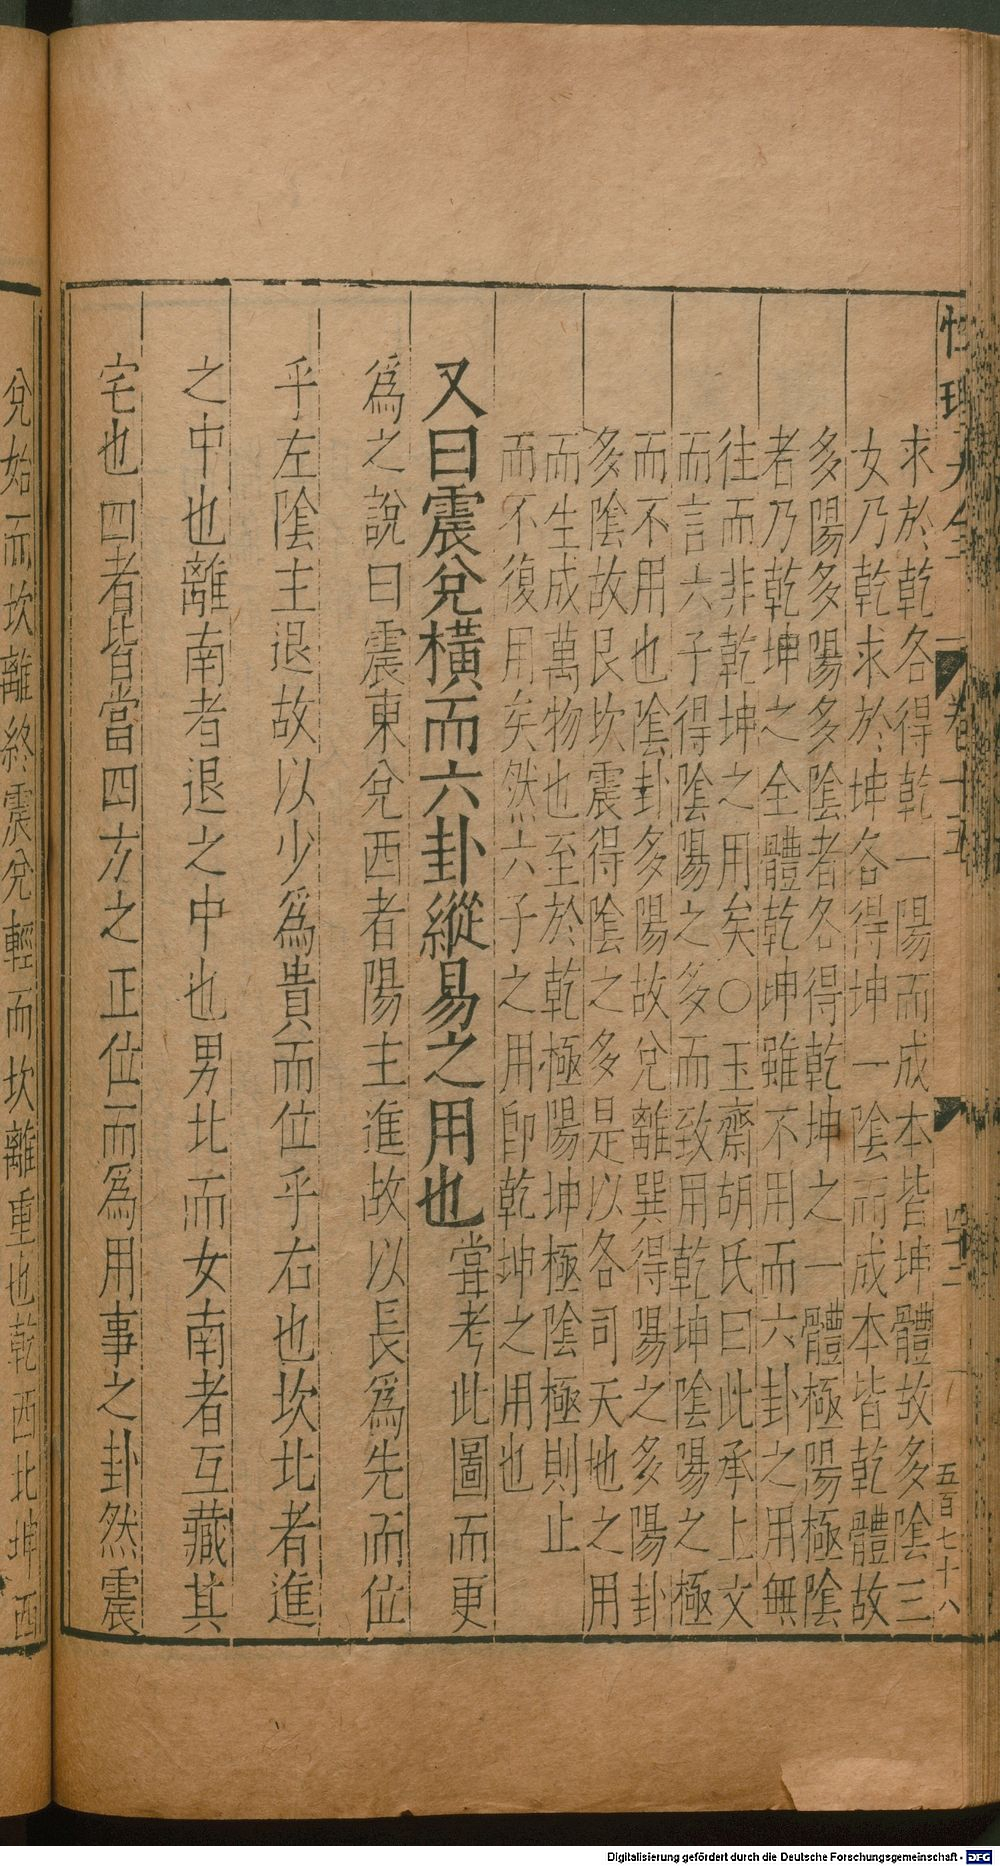 性理大全
卷十五
四十二
五百七十八
求於乾各得乾一陽而成本皆坤體故多陰三
女乃乾求於坤各得坤一陰而成本皆乾體故
多陽多陽多陰者各得乾坤之一體極陽極陰
者乃乾坤之全體乾坤雖不用而六卦之用無
往而非乾坤之用矣○玉齋胡氏曰此承上文
而言六子得陰陽之多而致用乾坤陰陽之極
而不用也陰卦多陽故兌離巽得陽之多陽卦
多陰故艮坎震得陰之多是以各司天地之用
而生成萬物也至於乾極陽坤極陰極則止
而不復用矣然六子之用卽乾坤之用也
又曰震兌橫而六卦縱易之用也當考此圖而更
爲之說曰震東兌西者陽主進故以長爲先而位
乎左陰主退故以少爲貴而位乎右也坎北者進
之中也離南者退之中也男北而女南者互藏其
宅也四者皆當四方之正位而爲用事之卦然震
兌始而坎離終震兌輕而坎離重也乾西北坤西
Digitalisierung gefördert durch die Deutsche Forschungsgemeinschaft - DFG